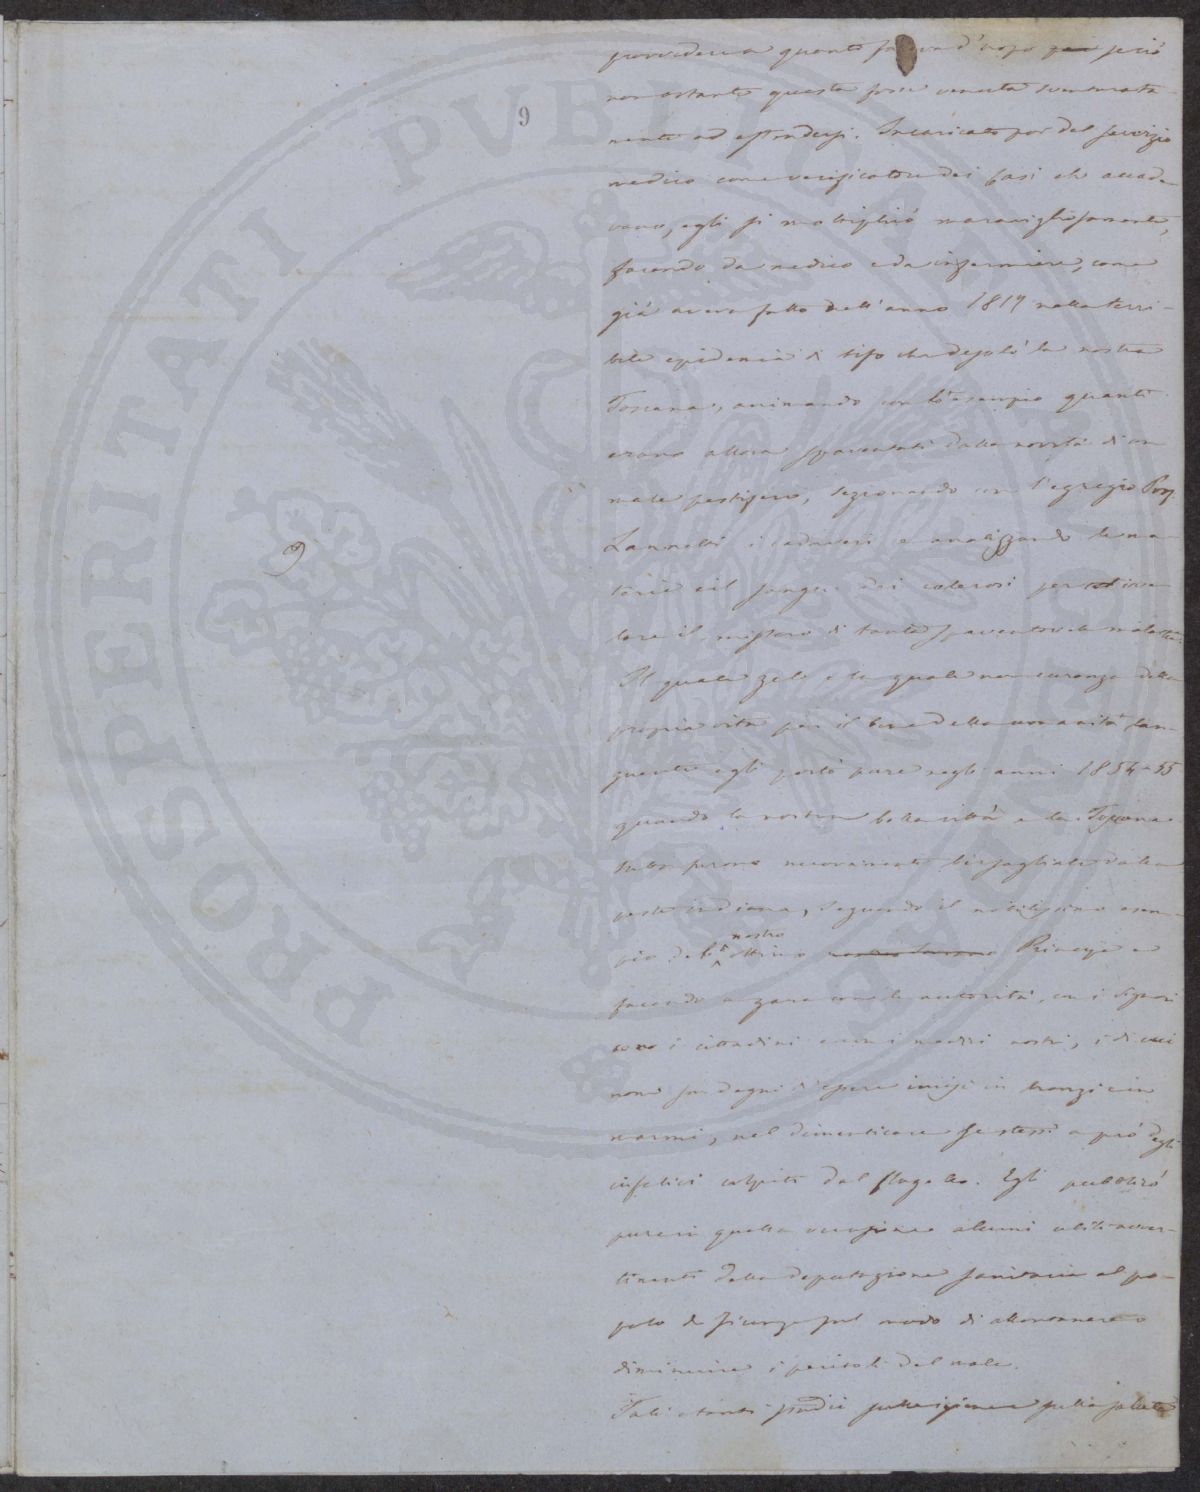 9
provvedeva quanto faceva d'uopo perciò
non ostante questa fosse venuta sventurata-
mente ad estendersi. Incaricato poi del servizio
medico come verificatore dei casi che accade-
vano, egli si moltiplicò maravigliosamente,
facendo da medico e da infermiere, come
già aveva fatto nell'anno 1817 nella terri-
bile epidemia di tifo che desolò la nostra
Toscana, animando coll'esempio quanti
erano allora spaventati dalla novità di un
male pestifero, sezionando con l'egregio Prof.
i cadaveri e analizzando le ma-
terie e il sangue dei colerosi per
lare il mistero di tanto spaventevole malattia.
Il quale zelo e la quale noncuranza della
propria vita per il bene della umanità lan-
guente egli portò pure negli anni 1854-55
quando la nostra bella città e la Toscana
tutta furono nuovamente bersagliate dalla
peste indiana, seguendo il nobilissimo esem-
nostro
pio dell'ottimo Principe e
facendo a gara con le autorità, con i signori
con i cittadini e con i medici nostri, i di cui
nomi son degni d'essere incisi in bronzi e in
marmi, nel dimenticare se stessi a prò degli
infelici colpiti dal flagello. Egli pubblicò
pure in quella occasione alcuni utili avver-
timenti della deputazione sanitaria al po-
polo di Firenze sul modo di allontanare o
diminuire i pericoli del male.
Tali e tanti studii sulla igiene e sulla salute
9
PROSPERITATI PVBLICAE AVGENDAE